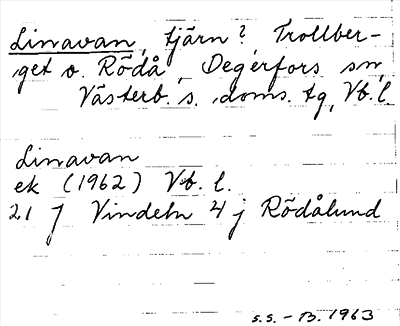 Linavan, tjärn?, Trollber-
get o. Rödå, Degerfors sn,
Västerb. s. doms. tg, Vb. l.
Linavan
ek (1962) Vb. l.
21 J Vindeln 4 j Rödålund
S.S. - B. 1963